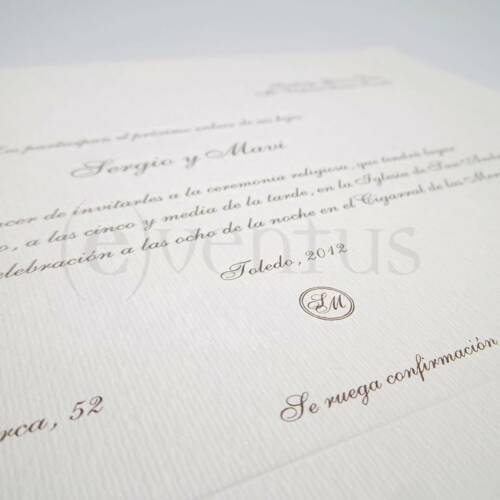 Les participan el próximo enlace de su hijo
Sergio y Mavi
acer de invitarles a la ceremonia religiosa, que tendrá lugar
o, a las cinco y media de la tarde, en la Iglesia de San Andr
elebración a las ocho de la noche en el Cigarral de las Mer
(e)ventus
Toledo, 2012
SM
rca, 52
Se ruega confirmación